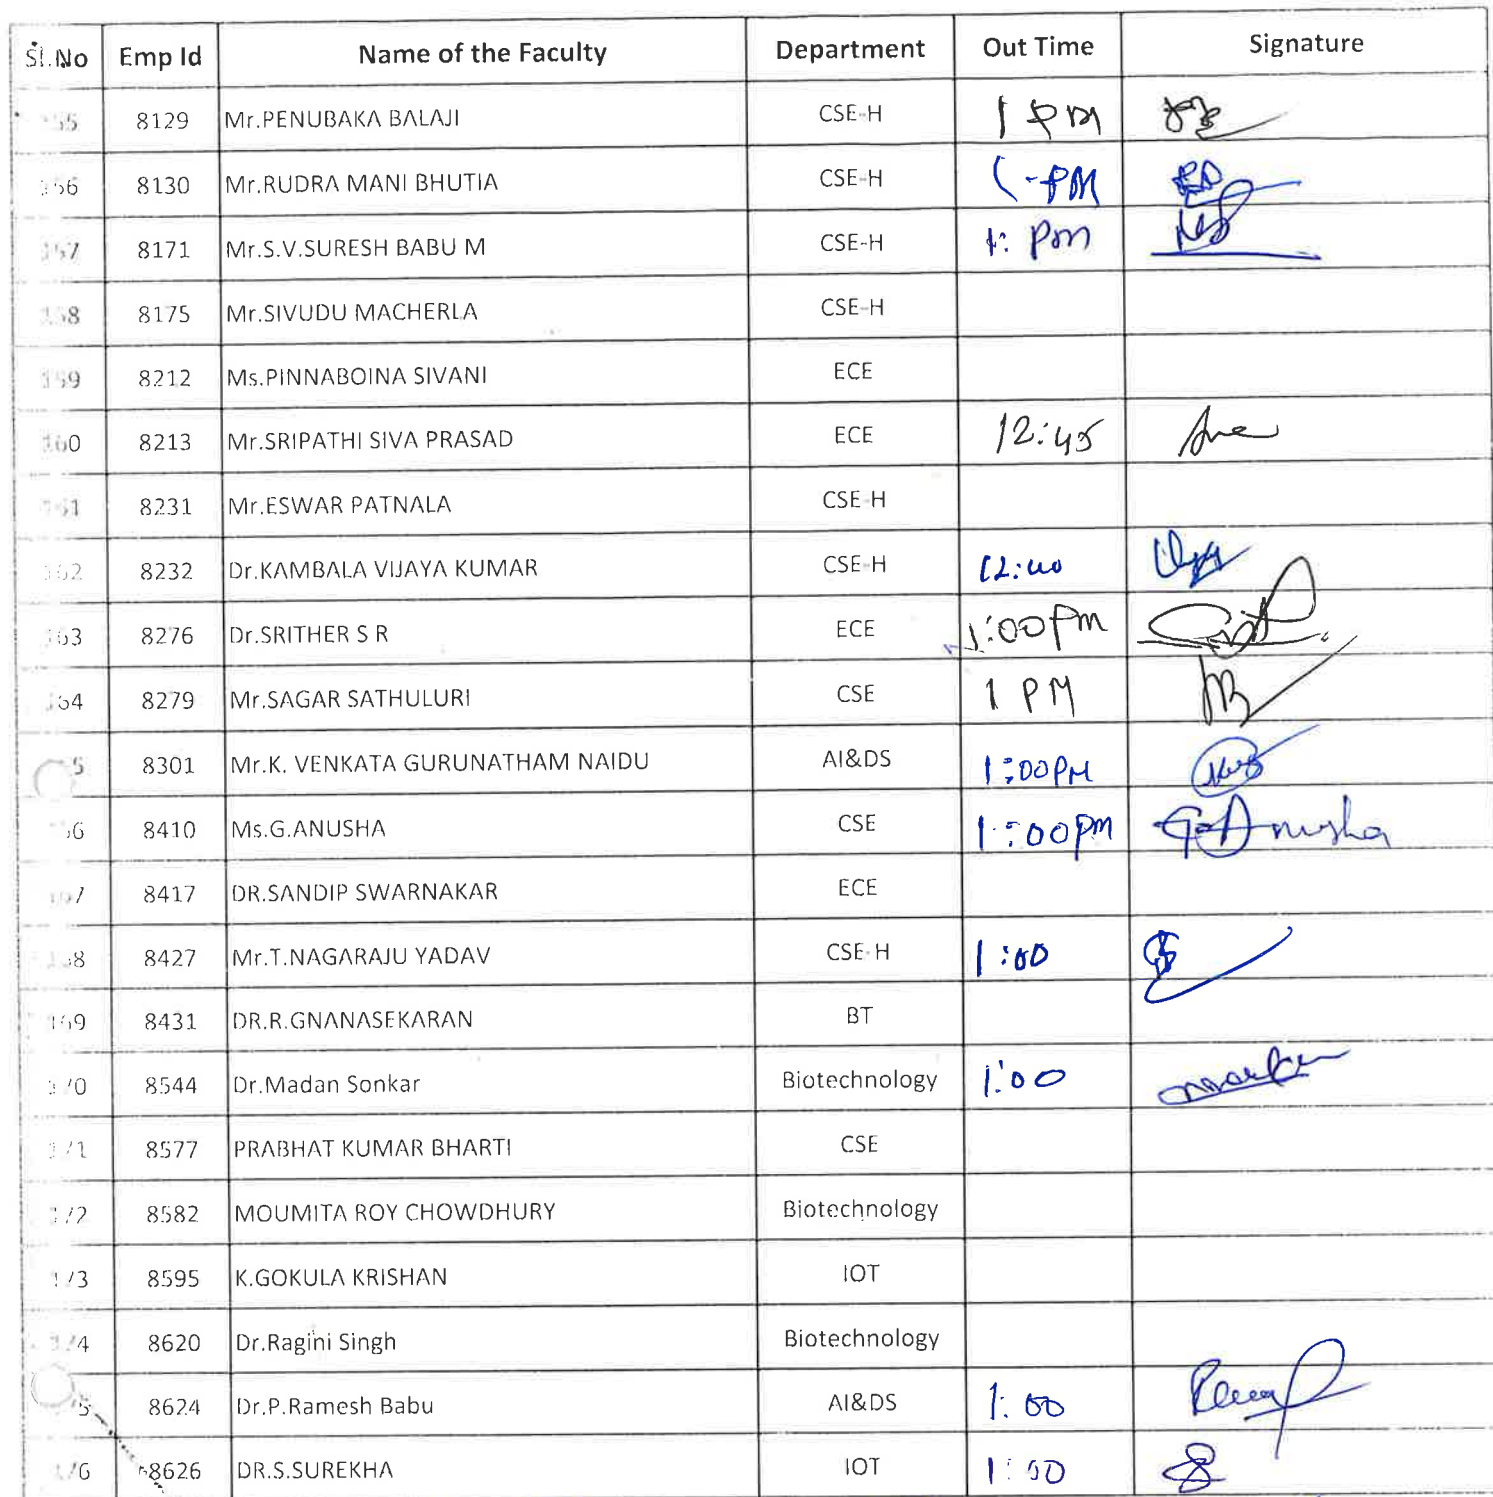 Sl.No Emp Id Name of the Faculty Department Out Time Signature
155 8129 Mr.PENUBAKA BALAJI CSE-H 1 PM
156 8130 Mr.RUDRA MANI BHUTIA CSE-H 1-PM
157 8171 Mr.S.V.SURESH BABU M CSE-H 1: Pm
158 8175 Mr.SIVUDU MACHERLA CSE-H
159 8212 Ms.PINNABOINA SIVANI ECE
160 8213 Mr.SRIPATHI SIVA PRASAD ECE 12:45
161 8231 Mr.ESWAR PATNALA CSE-H
162 8232 Dr.KAMBALA VIJAYA KUMAR CSE-H 12:40
163 8276 Dr.SRITHER S R ECE 1:00 Pm
164 8279 Mr.SAGAR SATHULURI CSE 1 PM
5 8301 Mr.K. VENKATA GURUNATHAM NAIDU AI&DS 1:00PM
66 8410 Ms.G.ANUSHA CSE 1:00pm G. Anusha
167 8417 DR.SANDIP SWARNAKAR ECE
168 8427 Mr.T.NAGARAJU YADAV CSE-H 1:00
169 8431 DR.R.GNANASEKARAN BT
170 8544 Dr.Madan Sonkar Biotechnology 1:00
171 8577 PRABHAT KUMAR BHARTI CSE
172 8582 MOUMITA ROY CHOWDHURY Biotechnology
173 8595 K.GOKULA KRISHAN IOT
174 8620 Dr.Ragini Singh Biotechnology
5 8624 Dr.P.Ramesh Babu AI&DS 1:00
176 8626 DR.S.SUREKHA IOT 1:00